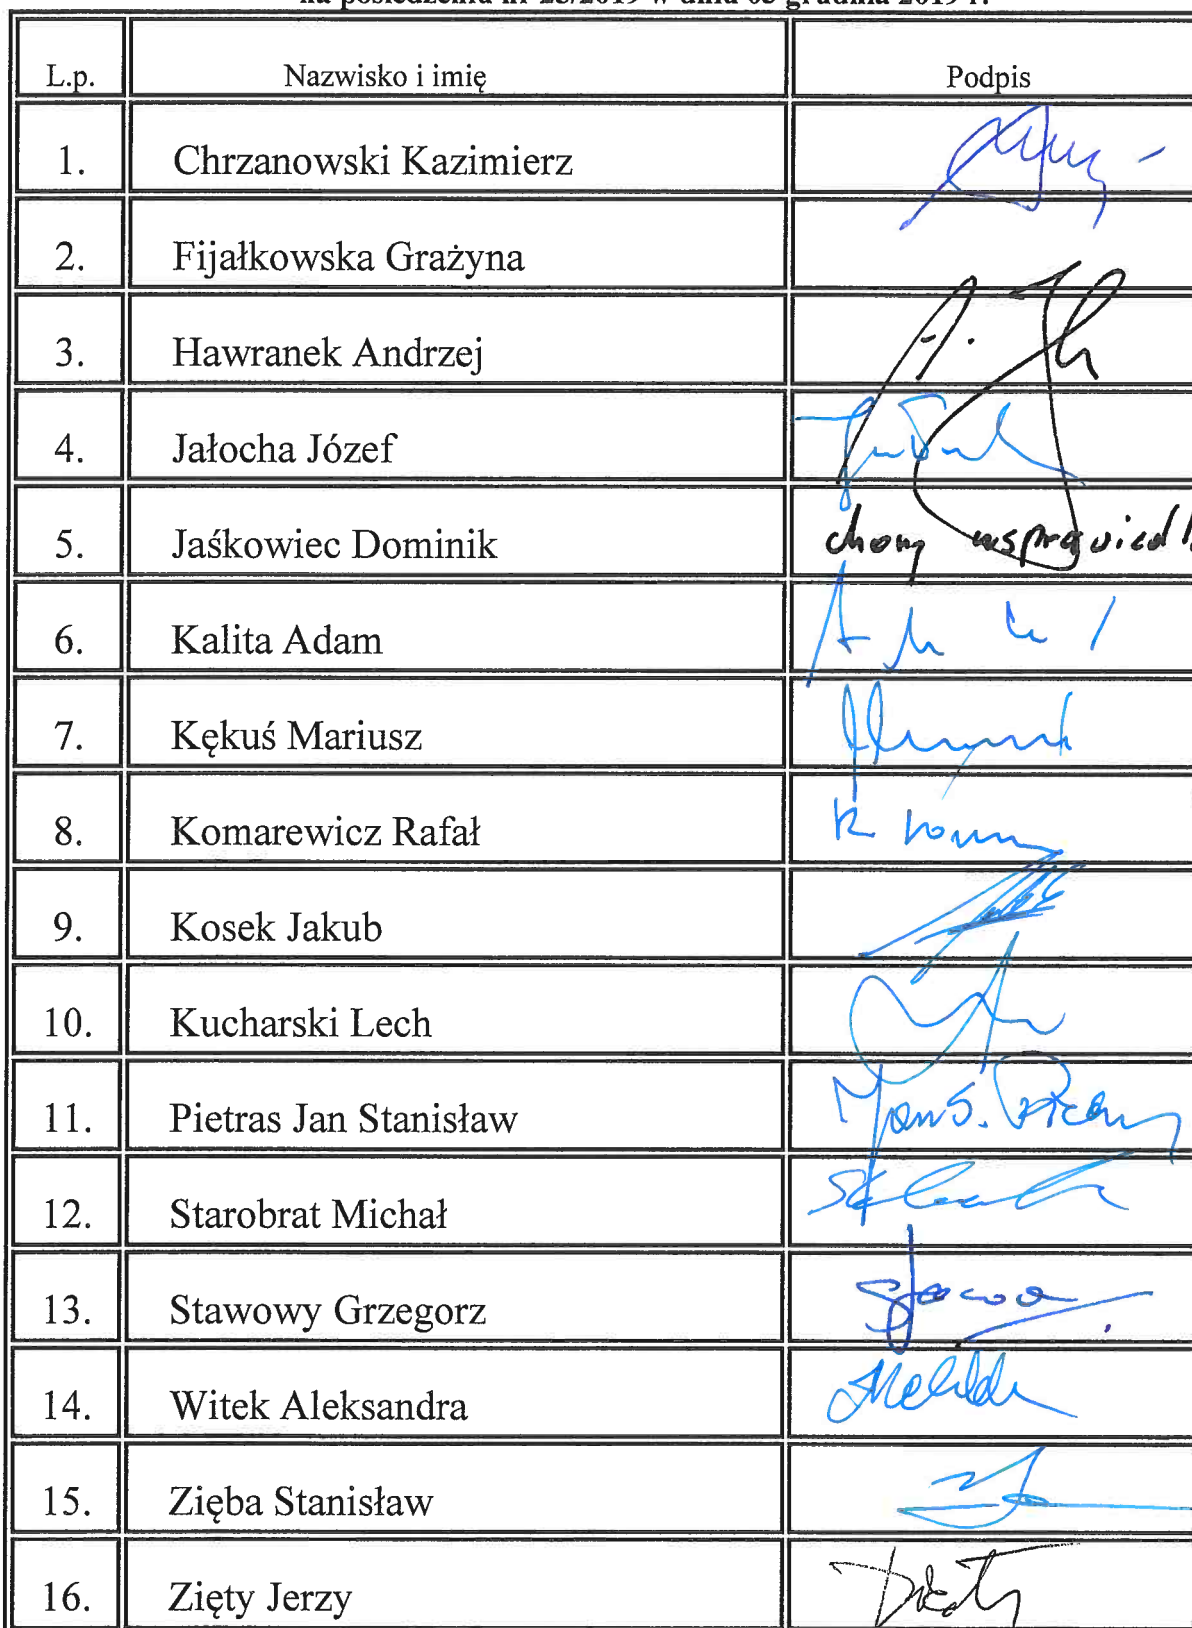 na posiedzeniu nr 28/2019 w dniu 03 grudnia 2019 r.
L.p. Nazwisko i imię Podpis
1. Chrzanowski Kazimierz
2. Fijałkowska Grażyna
3. Hawranek Andrzej
4. Jałocha Józef
5. Jaśkowiec Dominik chory
6. Kalita Adam
7. Kękuś Mariusz
8. Komarewicz Rafał
9. Kosek Jakub
10. Kucharski Lech
11. Pietras Jan Stanisław Jan S.
12. Starobrat Michał
13. Stawowy Grzegorz
14. Witek Aleksandra
15. Zięba Stanisław
16. Zięty Jerzy